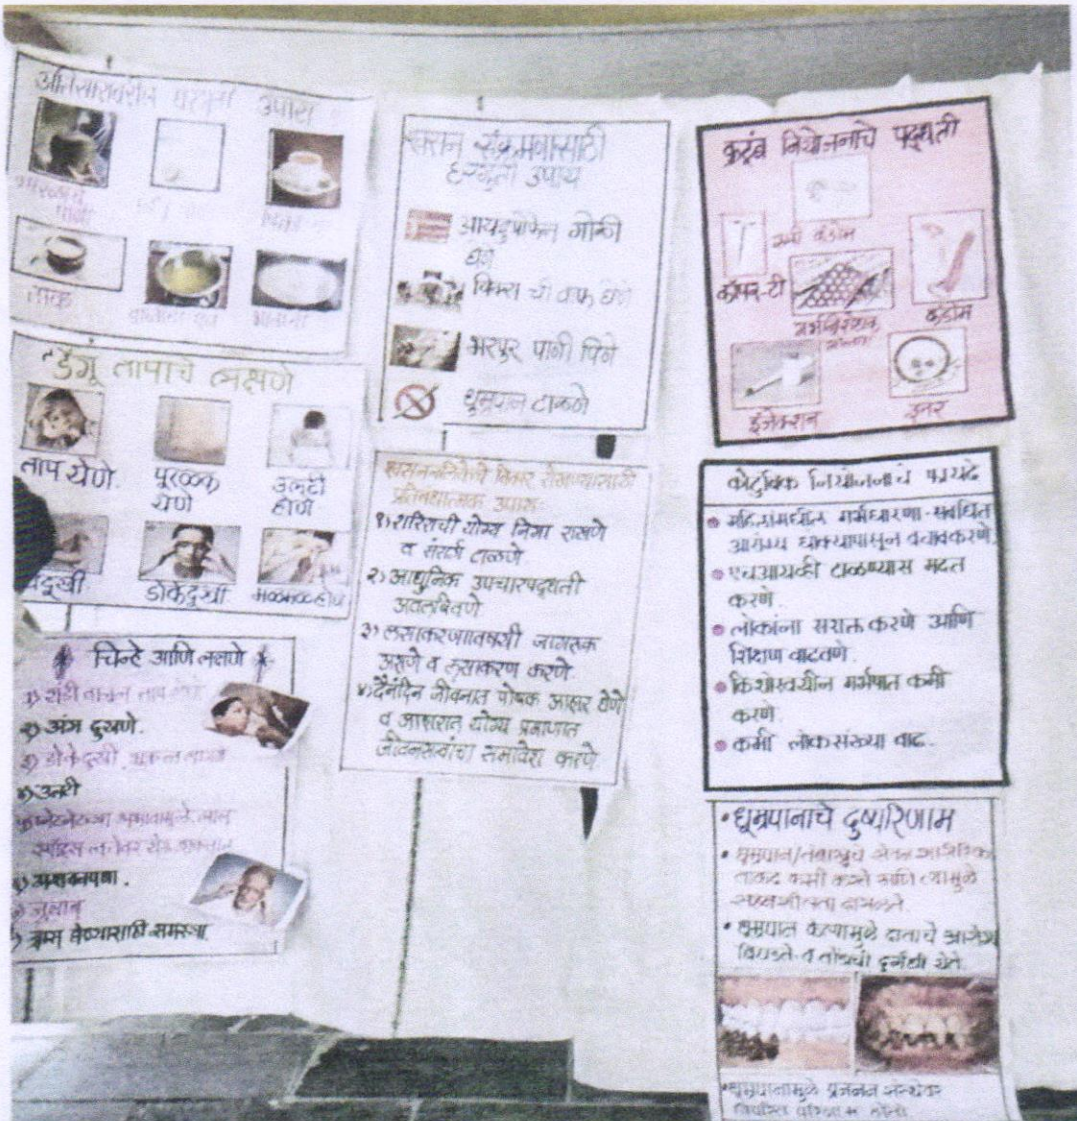 उपाय
ताक
डेंगू तापाचे लक्षणे
ताप येणे.
पुरळक येणे
उलटी होणे
डोकेदुखी
मळमळ होणे
चिन्हे आणि लक्षणे
२) अंग दुखणे.
४) उलटी
६) अशक्तपणा.
७) जुलाब
श्वास घेण्यासाठी समस्या.
श्वसन संक्रमणासाठी
घरगुती उपाय
गोळी
घेणे
विक्स ची वाफ घेणे
भरपुर पाणी पिणे
धूम्रपान टाळणे
प्रतिबंधात्मक उपाय:
१) शरिराची योग्य निगा राखणे
व संसर्ग टाळणे.
२) आधुनिक उपचारपद्धती
अवलंबिवणे
३) लसीकरणाविषयी जागरूक
असणे व लसीकरण करणे.
४) दैनंदिन जीवनात पोषक आहार घेणे
व आहारात योग्य प्रमाणात
जीवनसत्वांचा समावेश करणे.
कुटुंब नियोजनाचे पद्धती
कॉपर-टी
कंडोम
इंजेक्शन
कौटुंबिक नियोजनाचे फायदे
महिलांमधील गर्भधारणा-संबंधित
आरोग्य धोक्यापासून बचाव करणे.
एचआयव्ही टाळण्यास मदत
करणे.
लोकांना सशक्त करणे आणि
शिक्षण वाढवणे.
किशोरवयीन गर्भपात कमी
करणे.
कमी लोकसंख्या वाढ.
• धूम्रपानाचे दुष्परिणाम
• धूम्रपान/तंबाखुचे सेवन
कमी करते आणि त्यामुळे
• धूम्रपान केल्यामुळे दाताचे आरोग्य
बिघडते व तोंडाची दुर्गंधी येते.
• धूम्रपानामुळे प्रजनन संस्थेवर
विपरित परिणाम होतो.